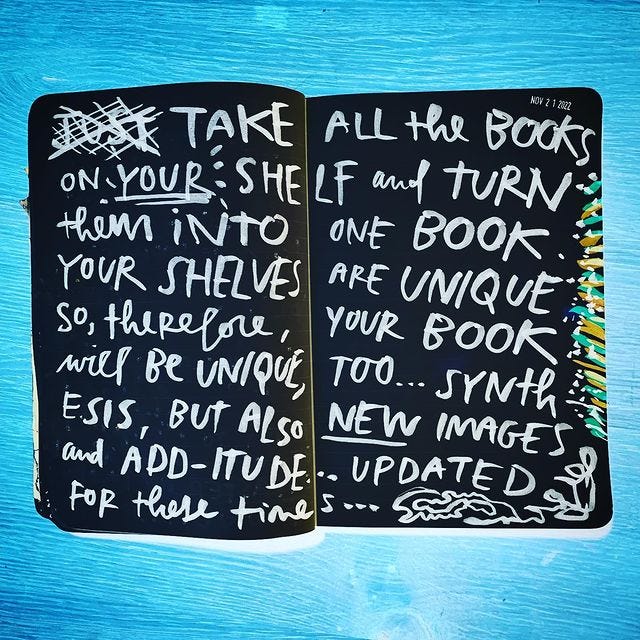 NOV 21 2022
JUST TAKE ALL the BOOKS
ON YOUR SHELF and TURN
them INTO ONE BOOK.
YOUR SHELVES ARE UNIQUE
SO, therefore, YOUR BOOK
will BE UNIQUE, TOO... SYNTH
ESIS, BUT ALSO NEW IMAGES
and ADD-ITUDE... UPDATED
FOR these times...